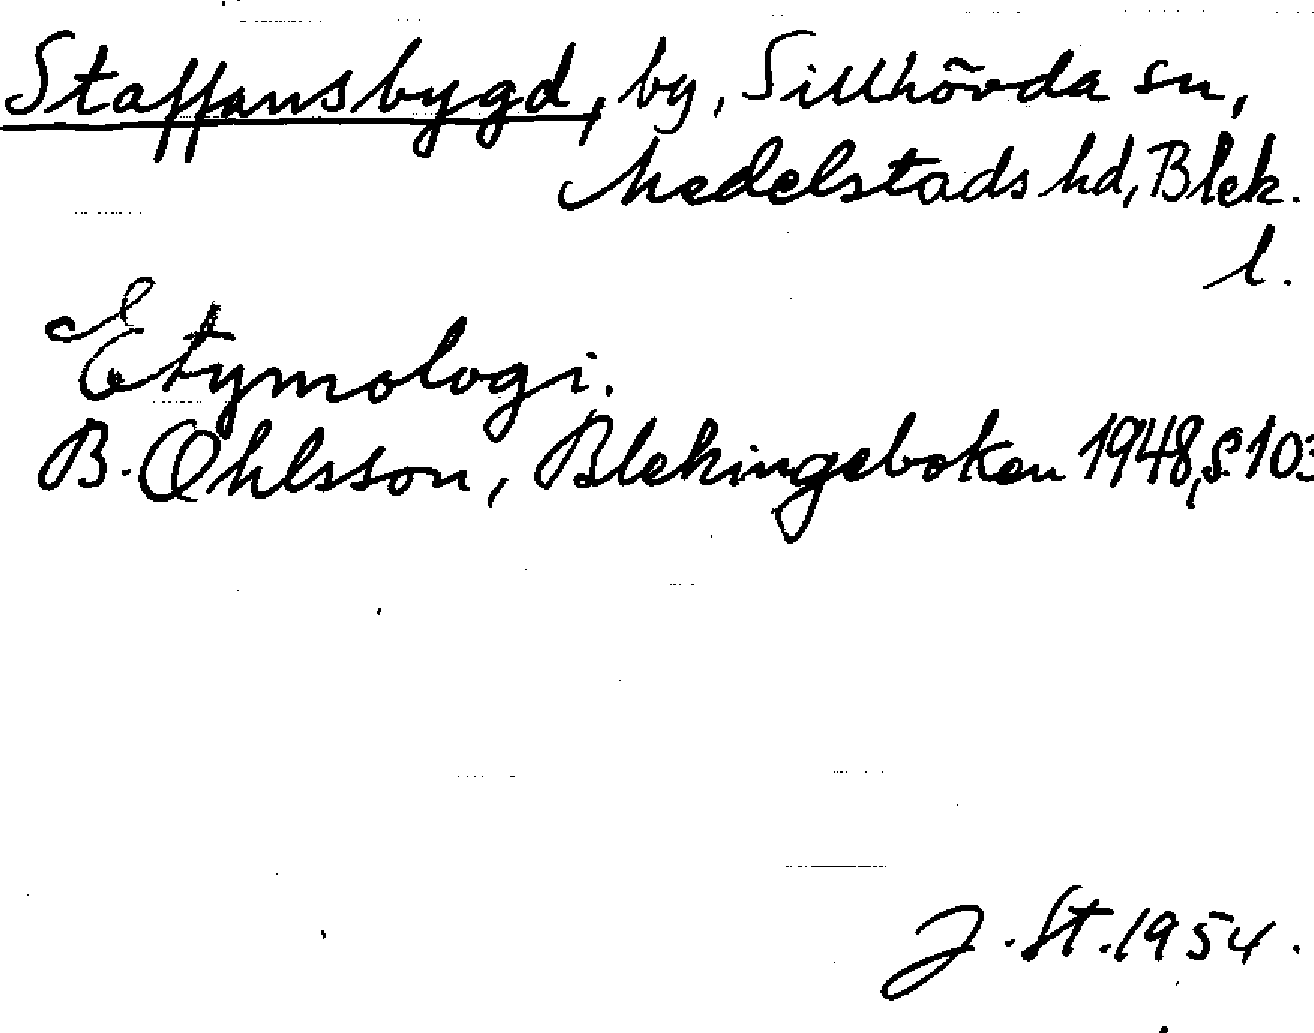 Staffansbygd, by, Sillhövda sn,
Medelstads hd, Blek.
l.
Etymologi.
B. Ohlsson, Blekingeboken 1948, s. 103
J. St. 1954.